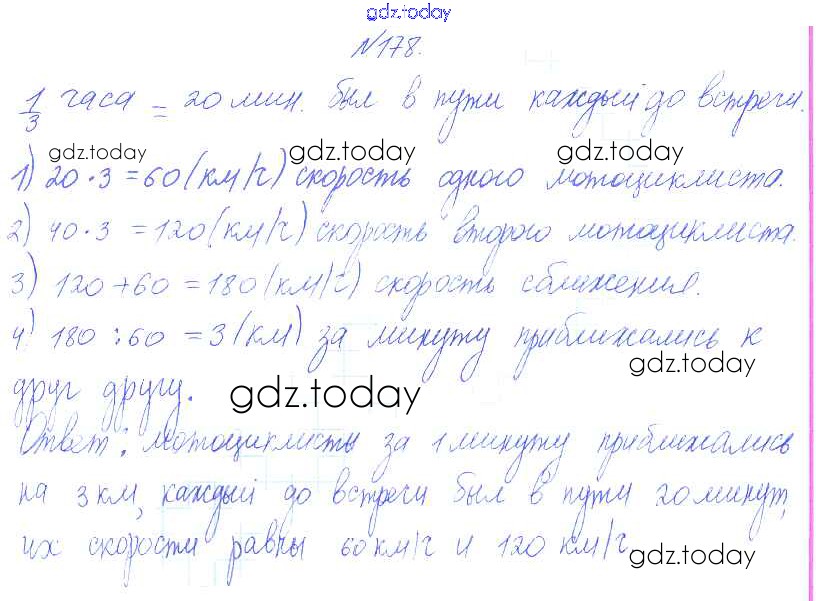 gdz.today
№178.
1/3 часа = 20 мин. был в пути каждый до встречи.
gdz.today gdz.today gdz.today
1) 20·3 = 60 (км/ч) скорость одного мотоциклиста.
2) 40·3 = 120 (км/ч) скорость второго мотоциклиста.
3) 120+60 = 180 (км/ч) скорость сближения.
4) 180:60 = 3 (км) за минуту приближались к
gdz.today
друг другу.
gdz.today
Ответ: мотоциклисты за 1 минуту приближались
на 3 км, каждый до встречи был в пути 20 минут,
их скорости равны 60 км/ч и 120 км/ч
gdz.today